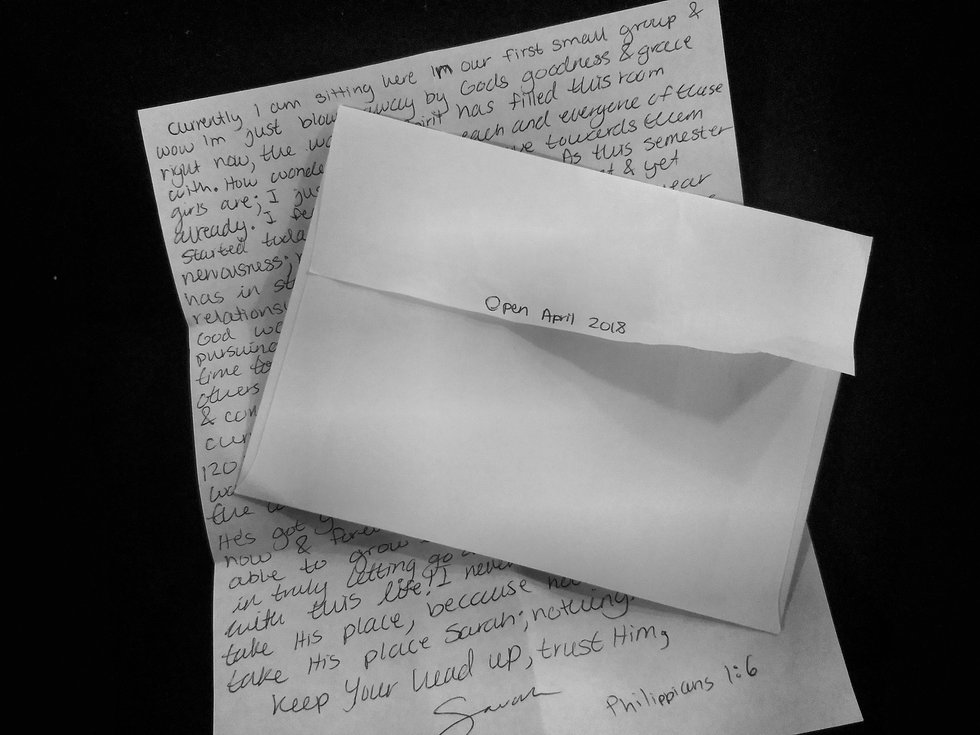 Currently I am sitting here in our first small group &
wow im just blow away by Gods goodness & grace
right now, the wa irit has filled this room
with. How wonde each and everyone of these
girls are; I jus ve towards them
already. I fe As this semester
started toda t & yet
nervousness; ear
has in st
relationsh
God wa
pursuing
time to
others
& con
curr
120
wa
the w
He's got y
now & forev
able to grow
in truly letting go
with this life! I never
take His place, because no
take His place Sarah; nothing.
Keep your head up, trust Him,
Sarah
Philippians 1:6
Open April 2018